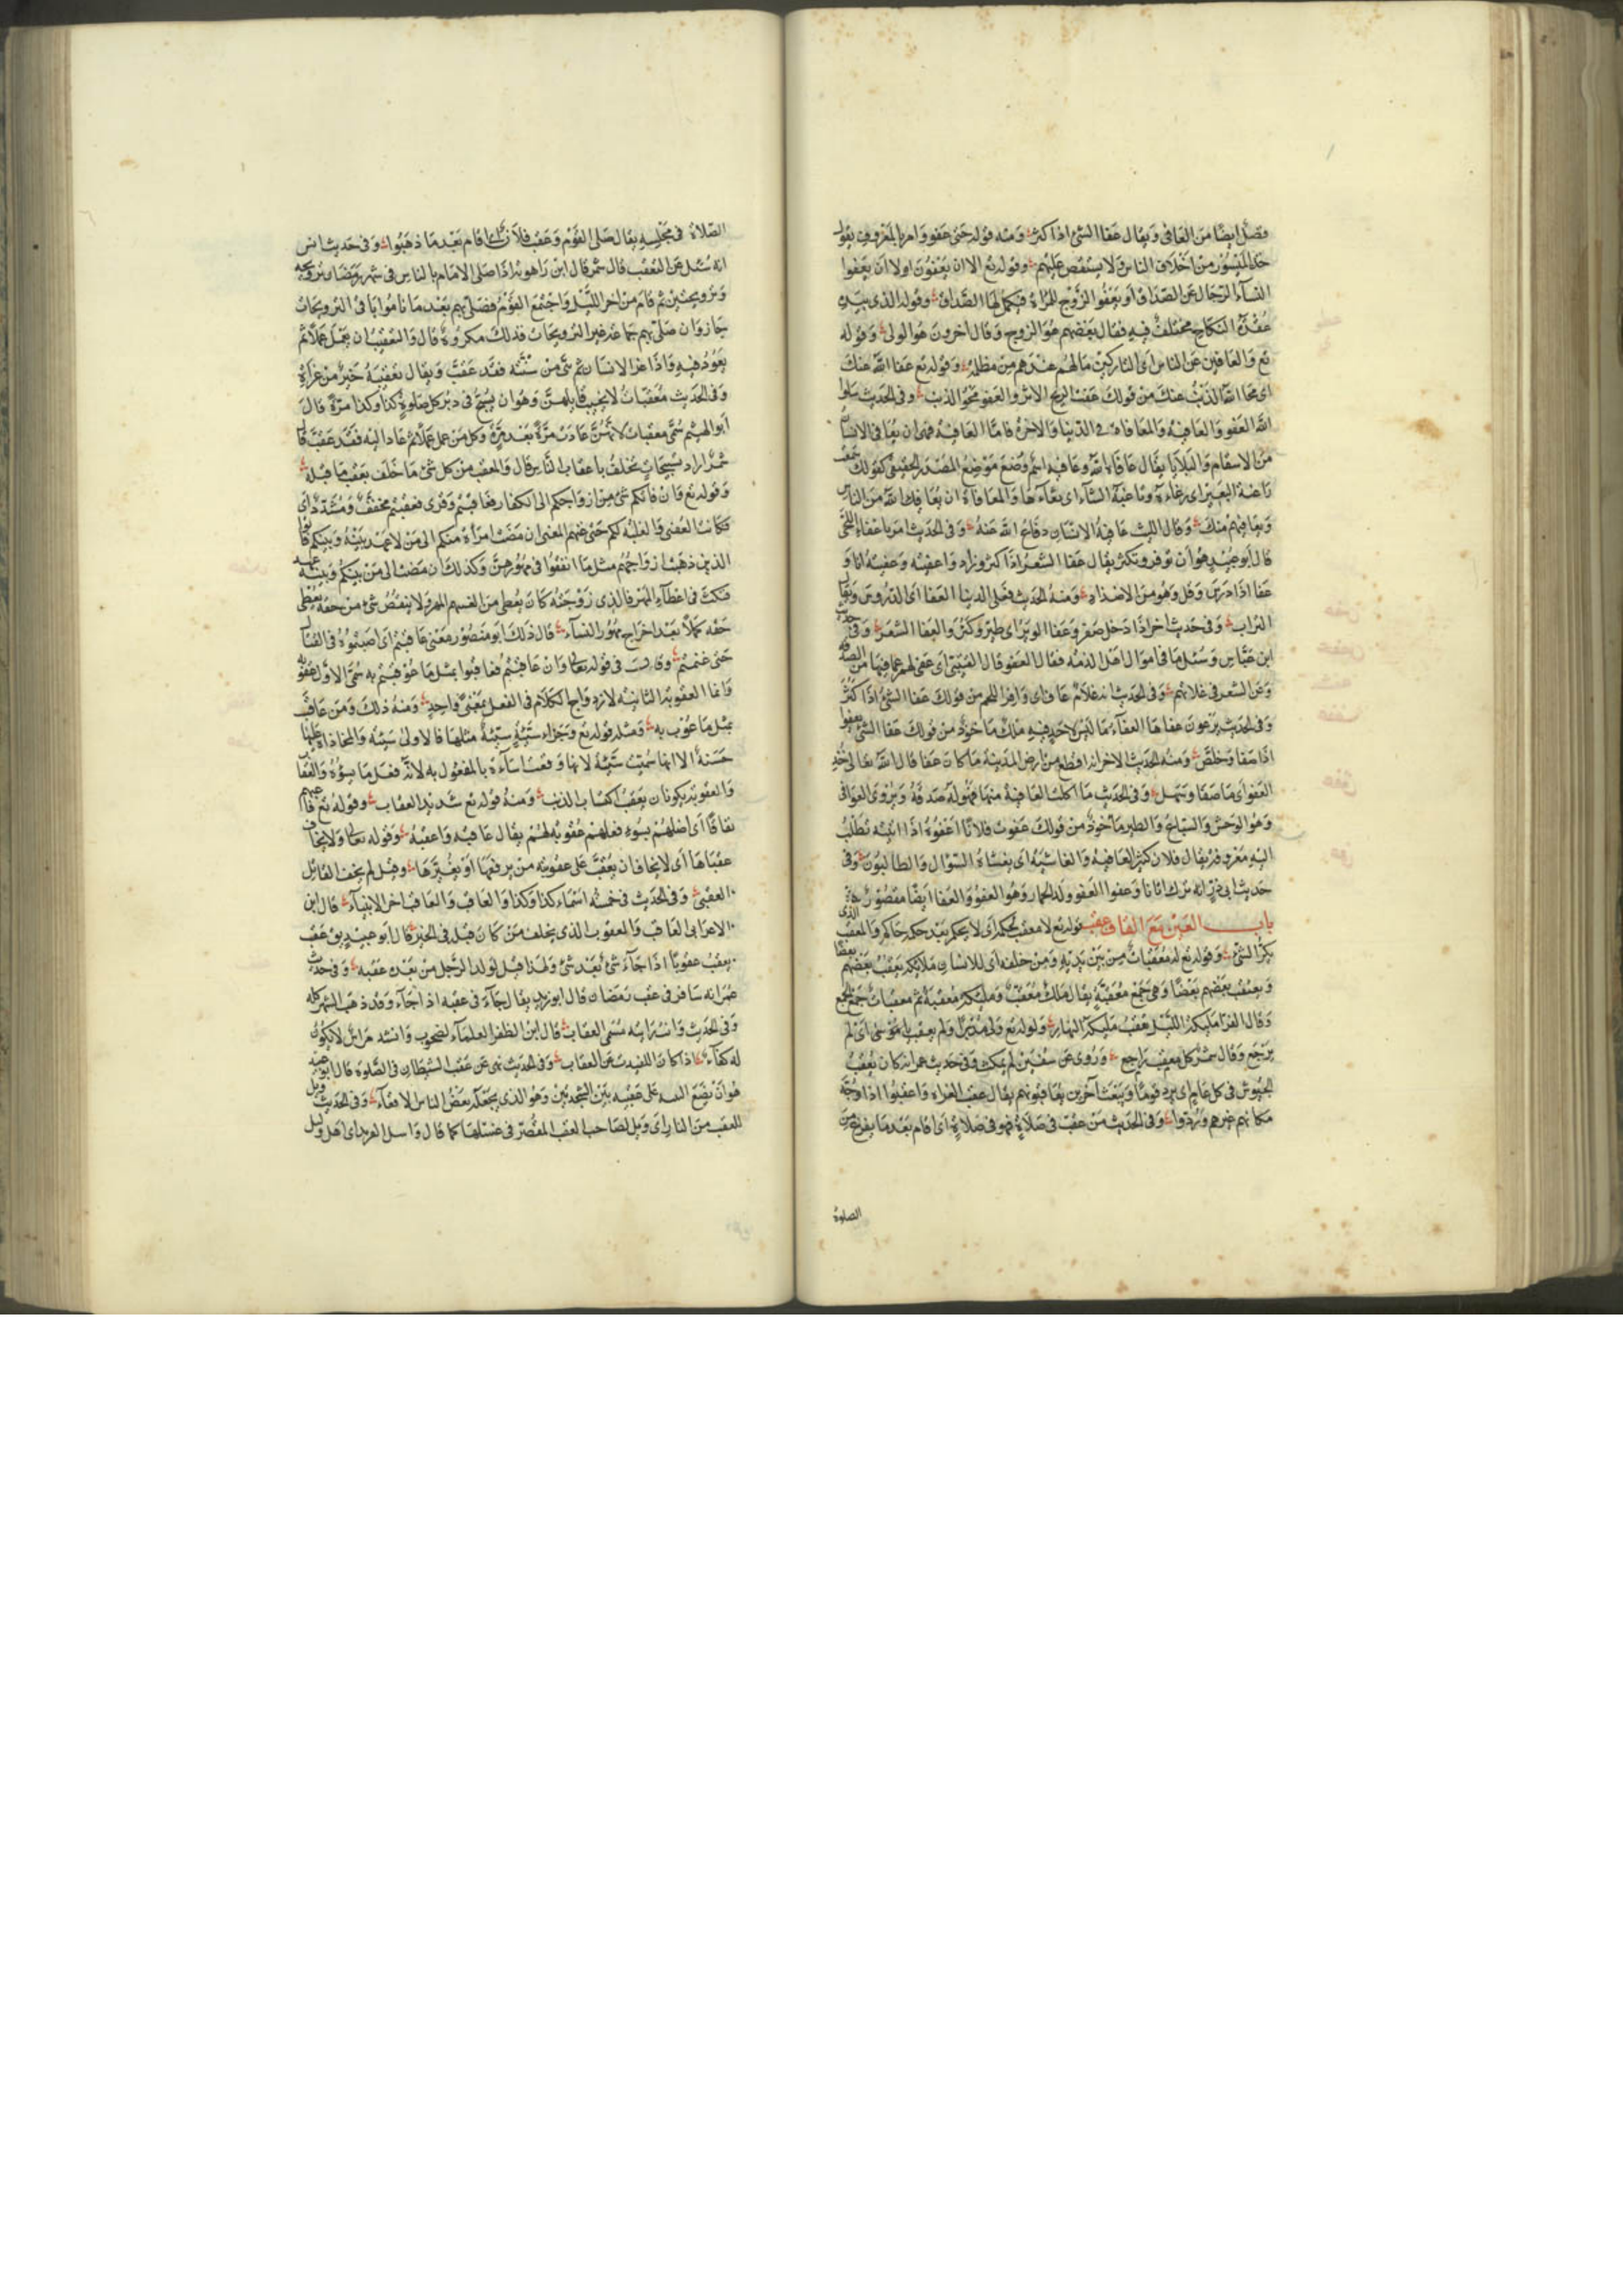 فضل ايضا من العافى ويقال عفا الشئ اذا كثر ومنه قوله حتى عفوا وامر بالمعروف يقول
خذ الميسور من اخلاق الناس ولا يستقص عليهم وقوله تع الا ان يعفون اولا ان يعفوا
النساء الرجال عن الصداق او يعفوا الزوج للمراة فيكمل لها الصداق وقوله الذى بيده
عقدة النكاح مختلف فيه فقال بعضهم هو الزوج وقال اخرون هو الولى وقوله
تع والعافين عن الناس اى التاركين مالهم عندهم من مظلمة وقوله تع عفا الله عنك
اى محا الله الذنب عنك من قولك عفت الريح الاثر والعفو محو الذنب وفى الحديث سلوا
الله العفو والعافية والمعافاة فى الدنيا والاخرة فاما العافية فهى ان يعافى الانسان
من الاسقام والبلايا يقال عافاه الله وعافية اسم وضع موضع المصدر الحقيقى كقولك سمعت
ثاغية البعير اى رغاءه وثاغية الشاء اى ثغاءها والمعافاة ان يعافيك الله من الناس
ويعافيهم منك وقال الليث عافية الانسان دفاع الله عنه وفى الحديث امر باعفاء اللحى
قال ابو عبيد هو ان توفر وتكثر يقال عفا الشعر اذا كثر وزاد واعفيته وعفيته انا و
عفا اذا درس وقل وهو من الاضداد ومنه الحديث فعلى الدنيا العفا اى الدروس ويقال
التراب وفى حديث اخر اذا دخل صفر وعفا الوبر اى طر وكثر والعفا الشعر وفى حديث
ابن عباس وسئل ما فى اموال اهل الذمة فقال العفو قال القتيبى اى عفى لهم عما فيها من الصدقة
وعن الشعر فى غلاتهم وفى الحديث انه غلام عاف اى وافر اللحم من قولك عفا الشئ اذا كثر
وفى الحديث يرعون عفاها العفاء ما ليس لاحد فيه ملك ماخوذ من قولك عفا الشئ يعفوا
اذا صفا وخلص ومنه الحديث الاخر انه اقطع من ارض المدينة ما كان عفا قال الله تعالى خذ
العفو اى ما صفا وسهل وفى الحديث ما اكلت العافية منها فهو له صدقة ويروى العوافى
وهو الوحش والسباع والطير ماخوذ من قولك عفوت فلانا اعفوه اذا اتيته تطلب
اليه معروفه يقال فلان كثير العافية والغاشية اى يغشاه السؤال والطالبون وفى
حديث ابى ذر انه ترك اتانا وعفوا العفو ولد الحمار وهو العفو والعفا ايضا مقصور
باب العين مع القاف عقب قوله تع لا معقب لحكمه اى لا يحكم بعد حكمه حاكم والمعقب الذى
يكر الشئ وقوله تع له معقبات من بين يديه ومن خلفه اى للانسان ملائكة يعقب بعضهم بعضا
ويعقب بعضهم بعضا وهى جمع معقبة يقال ملك معقب وملئكة معقبة ثم معقبات جمع الجمع
وقال الفرا ملئكة الليل تعقب ملئكة النهار وقوله تع ولى مدبرا ولم يعقب يا موسى اى لم
يرجع وقال شمر كل معقب راجع وروى عن سفين لم يمكث وفى حديث عمر انه كان يعقب
الجيوش فى كل عام اى يرد قوما ويبعث اخرين يعاقبونهم يقال عقب الغزاه واعقبوا اذا وجه
مكانهم غيرهم وردوا وفى الحديث من عقب فى صلاة فهو فى صلاة اى اقام بعد ما يفرغ من
الصلوة
الصلاة فى مجلسه يقال صلى القوم وعقب فلان اذا قام بعد ما ذهبوا وفى حديث انس
انه سئل عن التعقيب قال شمر قال ابن راهويه اذا صلى الامام بالناس فى شهر رمضان ترويحة
وترويحتين ثم قام من اخر الليل واجتمع القوم فصلى بهم بعد ما ناموا يافى الترويحات
جاز وان صلى بهم جماعة غير الترويحات فذلك مكروه قال والتعقيب ان يعمل عملا ثم
يعود فيه واذا غزا الانسان ثم ثنى من سنته فقد عقب ويقال تعقيبة خير من غزاة
وفى الحديث معقبات لا يخيب قائلهن وهو ان يسبح فى دبر كل صلوة كذا وكذا مرة قال
ابو الهيثم سمى معقبات لانهن عادت مرة بعد مرة وكل من عمل عملا ثم عاد اليه فقد عقب قال
شمر اراد تسبيحات تخلف باعقاب الناس قال والمعقب من كل شئ ما خلف بعقب ما قبله
وقوله تع وان فاتكم شئ من ازواجكم الى الكفار فعاقبتم وقرى فعقبتم مخفف ومشدد اى
فكانت العقبى والغلبة لكم حتى غنمتم المعنى ان مضت امراة منكم الى من لا عهد بينه وبينكم فاتوا
الذين ذهبت ازواجهم مثل ما انفقوا فى مهورهن وكذلك ان مضت الى من بينكم وبينه عهد
فنكث فى اعطاء المهر فالذى زوجته كان يعطى من الغنيمة المهر ولا ينقص شئ من حقه يعطى
حقه كملا بعد اخراج مهور النساء قال ذلك ابو منصور معنى عاقبتم اى اصبتموه فى القتال
حتى غنمتم وقال فى قوله تعالى وان عاقبتم فعاقبوا بمثل ما عوقبتم به سمى الاول عقوبة
وانما العقوبة الثانية لازدواج الكلام فى الفعل بمعنى واحد ومنه ذلك ومن عاقب
بمثل ما عوقب به ومثله قوله تع وجزاء سيئة سيئة مثلها فالاولى سيئة والمجازاة عليها
حسنة الا انها سميت سيئة لانها وقعت اساءة بالمفعول به لانه فعل ما يسؤه والعقاب
والعقوبة يكونان بعقب اكتساب الذنب ومنه قوله تع شديد العقاب وقوله تع فاعقبهم
نفاقا اى اضلهم بسوء فعلهم عقوبة لهم يقال عاقبه واعقبه وقوله تعالى ولا يخاف
عقباها اى لا يخاف ان يعقب على عقوبته من يرفعها او يغيرها وقيل لم يخف القاتل
العقبى وفى الحديث فى خمسة اسماء كذا وكذا والعاقب والعاقب اخر الانبياء قال ابن
الاعرابى العاقب والعقوب الذى يخلف من كان قبله فى الخير قال ابو عبيد يق عقب
يعقب عقوبا اذا جاء شئ بعد شئ ولهذا قيل لولد الرجل من بعده عقبه وفى حديث
عمر انه سافر فى عقب رمضان قال ابو زيد يقال جاء فى عقبه اذا جاء وقد ذهب الشهر كله
وفى الحديث وانه رايته تسمى العقاب قال ابن المظفر العلم
له كفاء وفى الحديث نهى عن عقب الشيطان فى الصلوة قال ابو عبيد
هو ان يضع اليته على عقبيه بين السجدتين وهو الذى يجعله بعض الناس الاقعاء وفى الحديث ويل
للعقب من النار اى ويل لصاحب العقب المقصر فى غسلها كما قال واسل القرية اى اهل